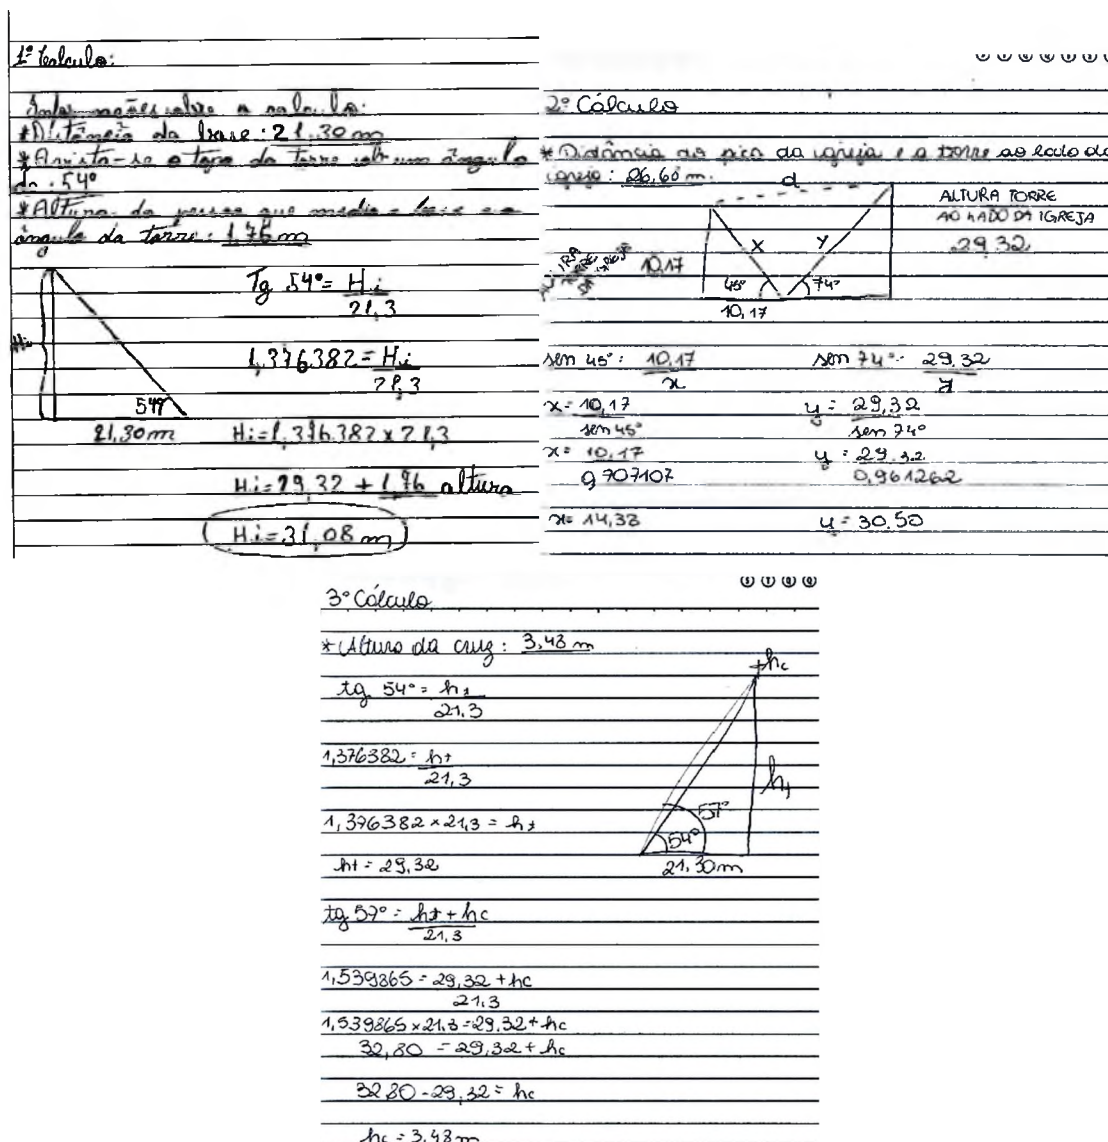 1º Calculo:
Informações sobre o calculo:
*Distância da base: 21,30 m
*Avista-se o topo da torre sob um ângulo
de: 54º
*Altura da pessoa que mediu a base e o
ângulo da torre: 1,76 m
Tg 54° = Hi
21,3
1,376382 = Hi
21,3
Hi
54º
21,30m
Hi = 1,376382 x 21,3
Hi = 29,32 + 1,76 altura
Hi = 31,08 m
2º Cálculo
* Distância do pico da igreja e a torre ao lado da
igreja: 26,60 m.
d
ALTURA TORRE
AO LADO DA IGREJA
29,32
10,17
x
y
45º
74º
10,17
sen 45º: 10,17
x
sen 74º: 29,32
y
x = 10,17
sen 45º
y = 29,32
sen 74º
x = 10,17
0,707107
y = 29,32
0,961262
x = 14,38
y = 30,50
3º Cálculo
* Altura da cruz: 3,48 m
+hc
tg 54º = ht
21,3
1,376382 = ht
21,3
ht
57º
54º
21,30m
1,376382 x 21,3 = ht
ht = 29,32
tg 57º = ht + hc
21,3
1,539865 = 29,32 + hc
21,3
1,539865 x 21,3 = 29,32 + hc
32,80 = 29,32 + hc
32,80 - 29,32 = hc
hc = 3,48 m